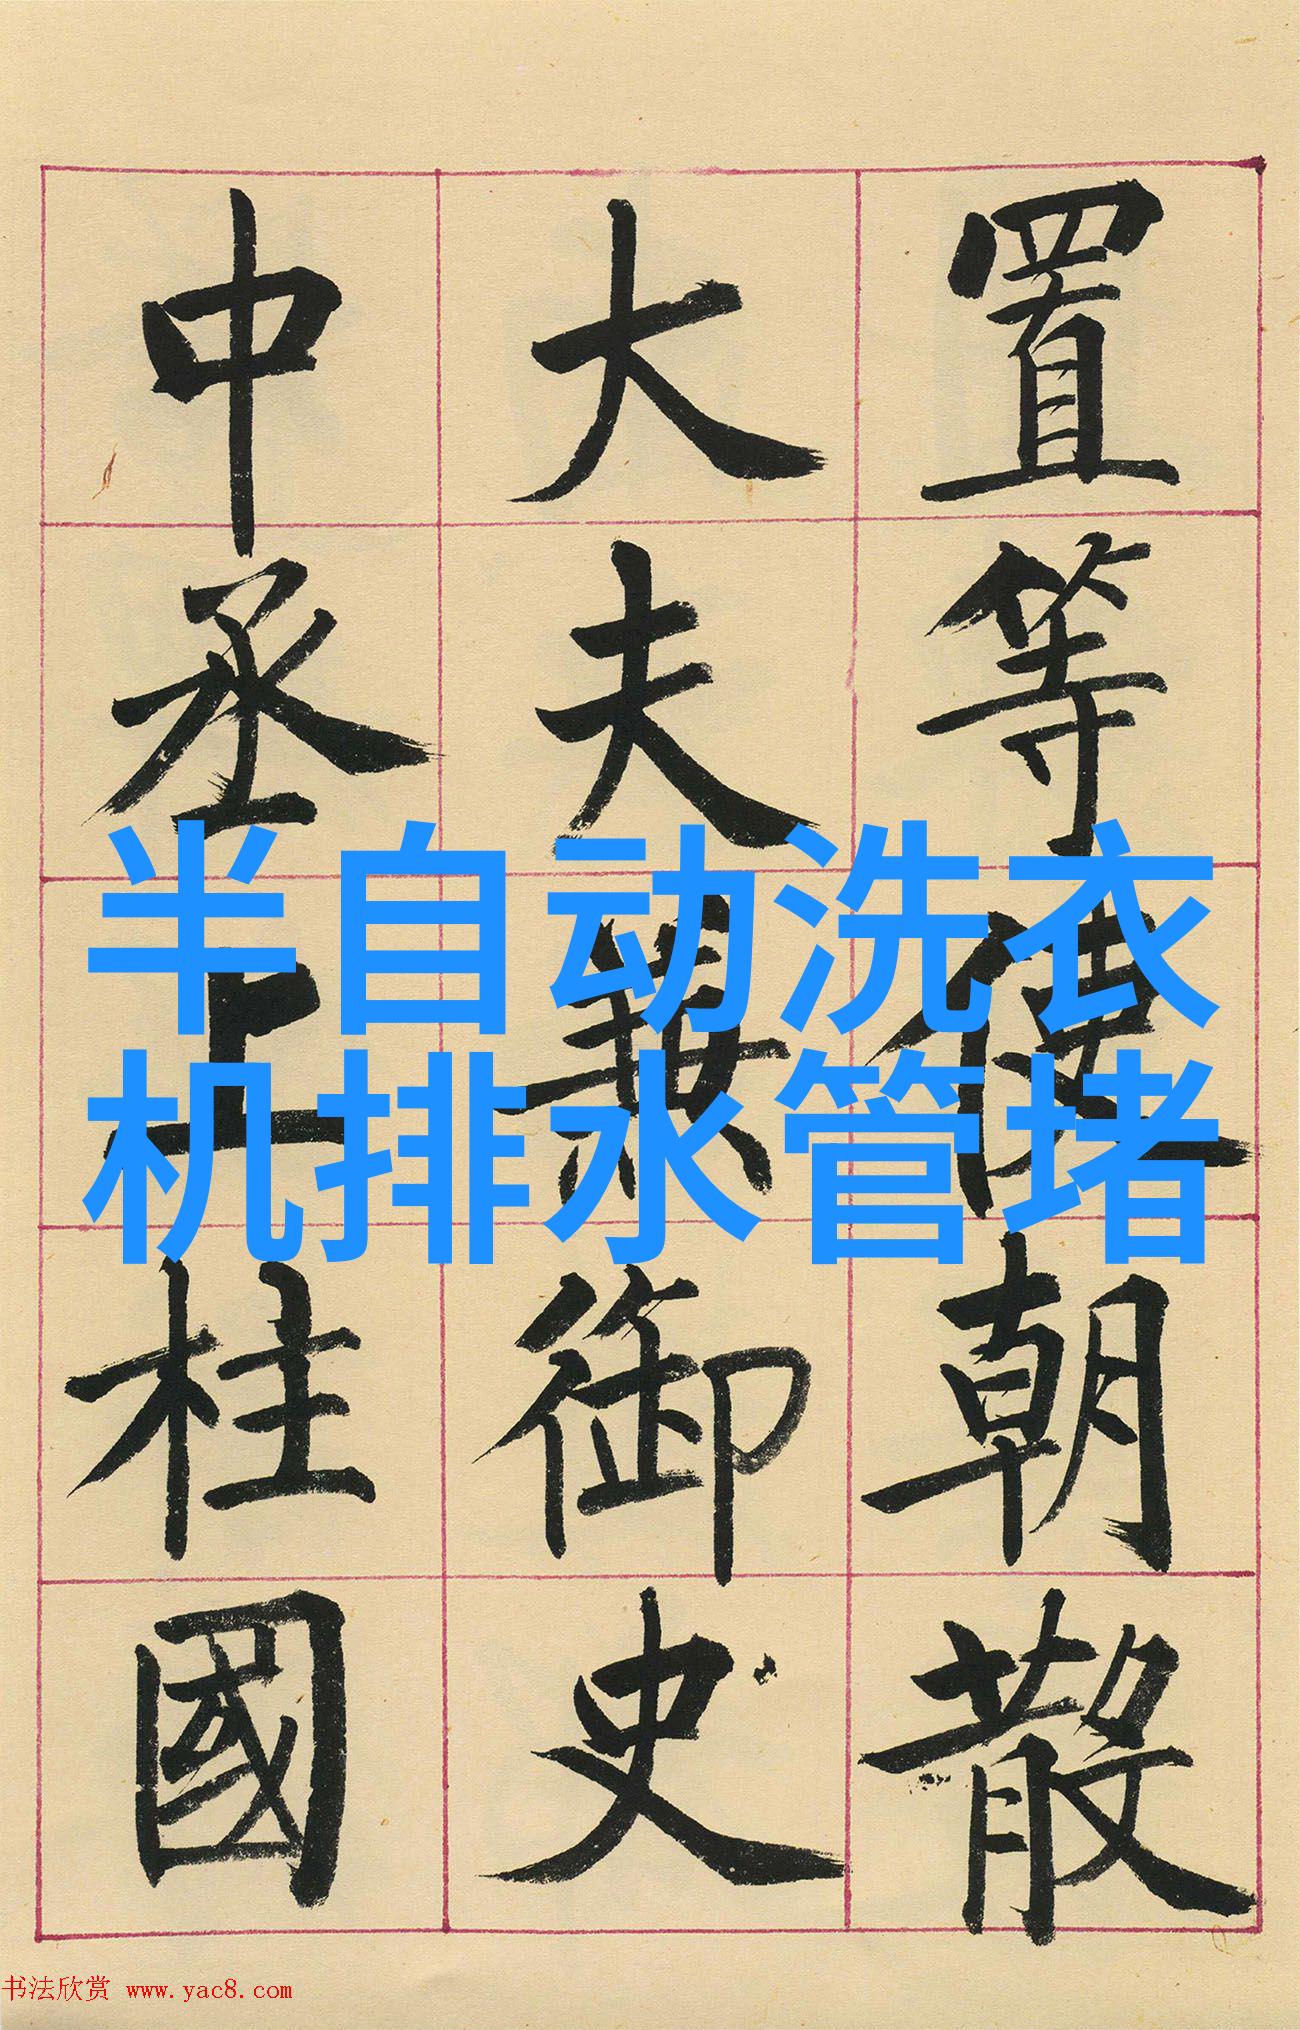 置等使朝散
大夫兼御史
中丞上柱國
半自动洗衣
机排水管堵
书法欣赏 www.yac8.com